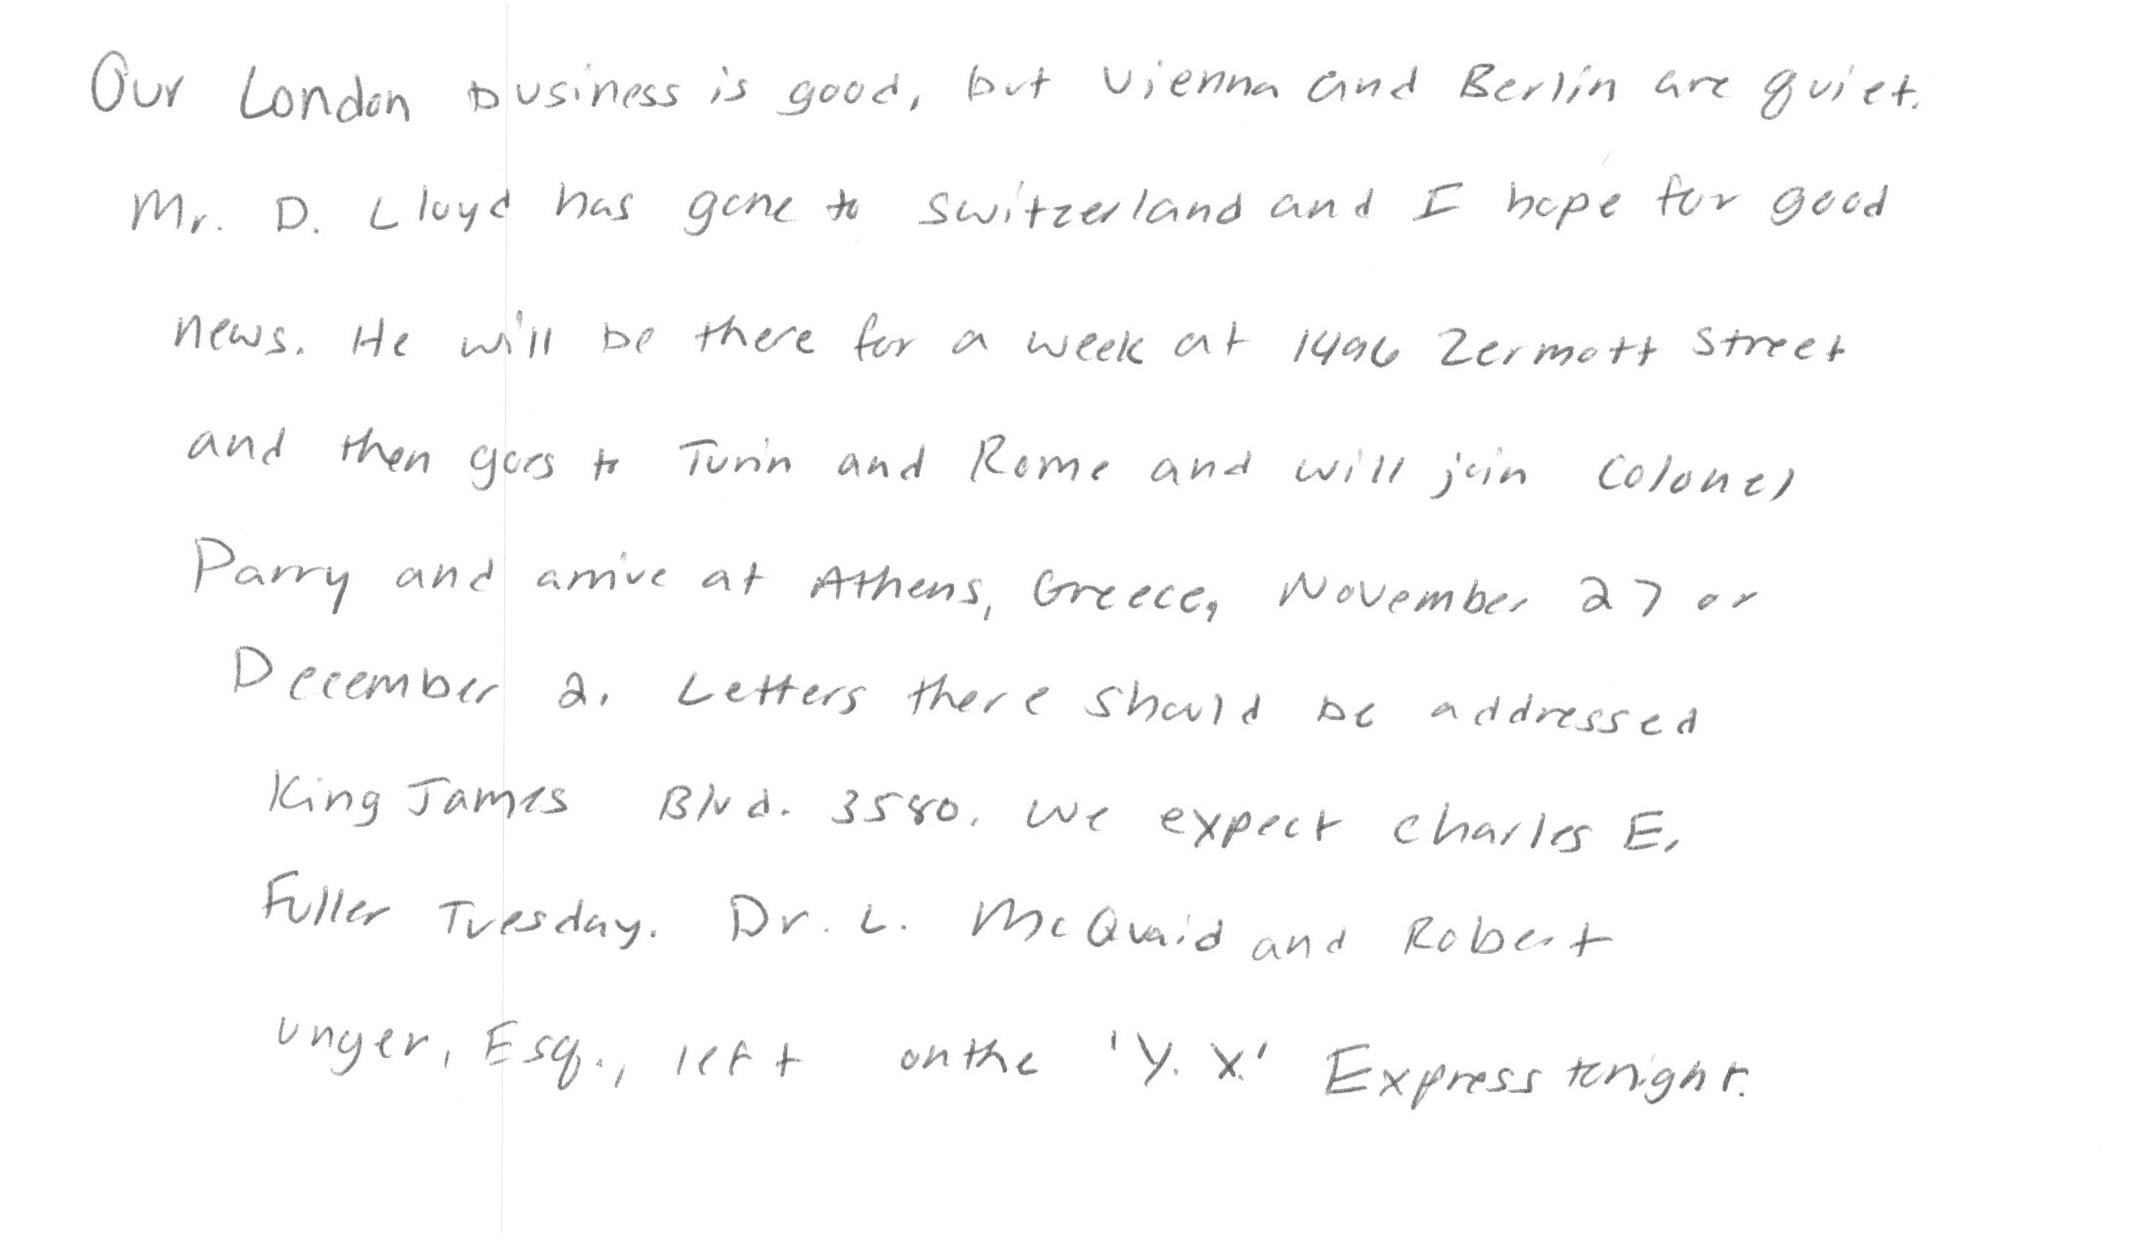 Our London business is good, but Vienna and Berlin are quiet.
Mr. D. Lloyd has gone to Switzerland and I hope for good
news. He will be there for a week at 1496 Zermott Street
and then goes to Turin and Rome and will join Colonel
Parry and arrive at Athens, Greece, November 27 or
December 2. Letters there should be addressed
King James Blvd. 3580. We expect Charles E.
Fuller Tuesday. Dr. L. McQuaid and Robert
Unger, Esq., left on the 'Y. X.' Express tonight.